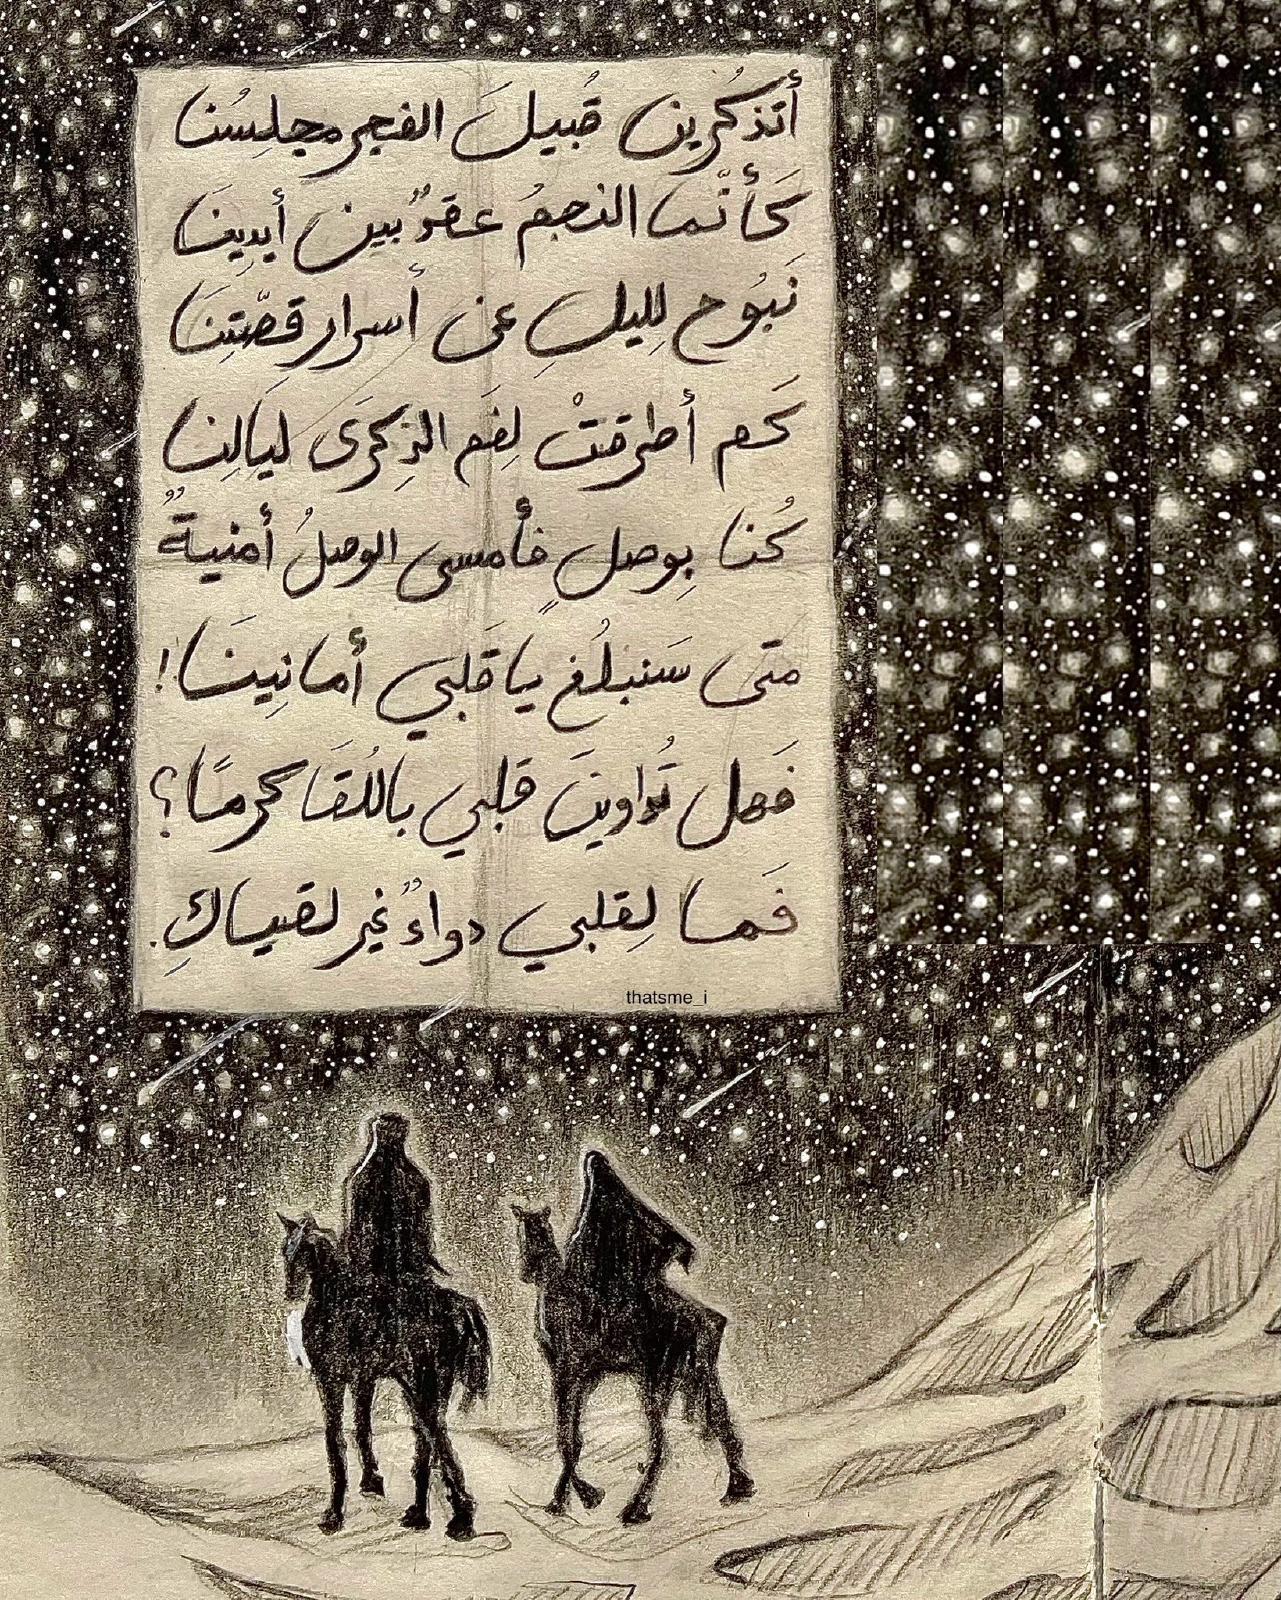 أتذكُرين قُبيلَ الفجرِ مجلِسُنا
كَأنّما النجمُ عقدٌ بين أيدِينَا
نَبُوح لِليلِ عن أسرارِ قصّتِنَا
كَم أطرقتْ لِفَمِ الذِكرَى ليَالِنا
كُنا بِوصلٍ فأمسى الوصلُ أمنيةً
متى سَنبلُغ يا قَلبي أمانِينَا!
فَهل تُداوينَ قلبي باللُقَا كرمًا؟
فَما لِقلبي دواءٌ غير لقياكِ.
thatsme_i